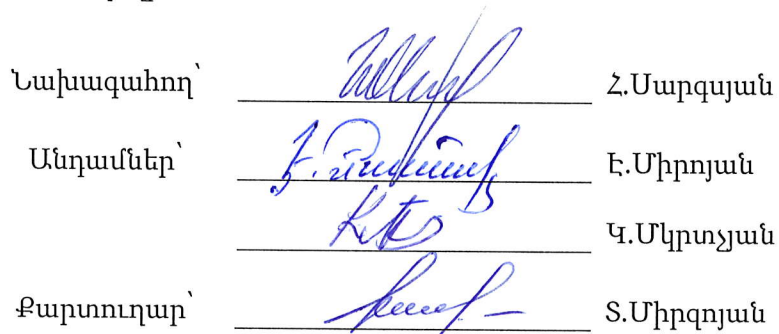 Նախագահող՝ Հ.Սարգսյան
Անդամներ՝ Է.Միրոյան
Կ.Մկրտչյան
Քարտուղար՝ Տ.Միրզոյան